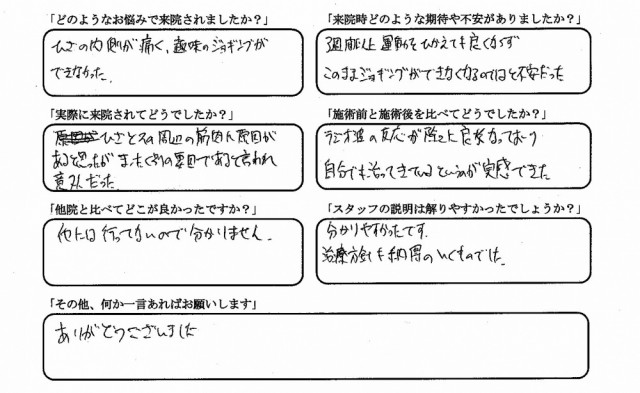 「どのようなお悩みで来院されましたか？」
ひざの内側が痛く、趣味のジョギングが
できなかった。
「来院時どのような期待や不安がありましたか？」
3週間以上運動をひかえても良くならず
このままジョギングができなくなるのではと不安だった
「実際に来院されてどうでしたか？」
ひざとその周辺の筋肉に原因が
あると思ったが、まったく別の要因であると言われ
意外だった。
「施術前と施術後を比べてどうでしたか？」
ラジオ波の反応が際立って良くなっており
自分でも治ってきているというのが実感できた
「他院と比べてどこが良かったですか？」
他には行ってないので分かりません。
「スタッフの説明は解りやすかったでしょうか？」
分かりやすかったです。
治療方針も納得のいくものでした。
「その他、何か一言あればお願いします」
ありがとうございました